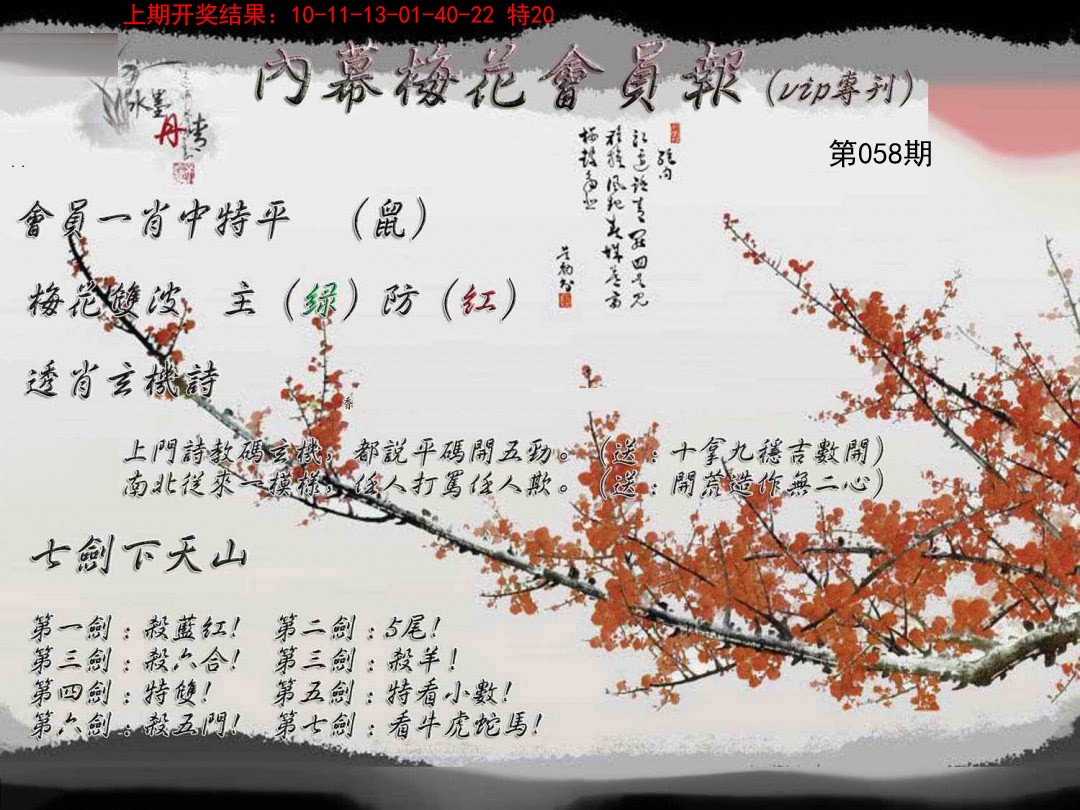 上期开奖结果：10-11-13-01-40-22 特20
內幕梅花會員報（vip專刊）
水墨丹青
第058期
會員一肖中特平 （鼠）
梅花雙波 主（绿）防（红）
透肖玄機詩
香
上門詩教碼玄機，都説平碼開五勁。（送：十拿九穩吉數開）
南北從來一模樣，任人打罵任人欺。（送：開荒造作無二心）
七劍下天山
第一劍：殺藍紅！ 第二劍：5尾！
第三劍：殺六合！ 第三劍：殺羊！
第四劍：特雙！ 第五劍：特看小數！
第六劍：殺五門！ 第七劍：看牛虎蛇馬！